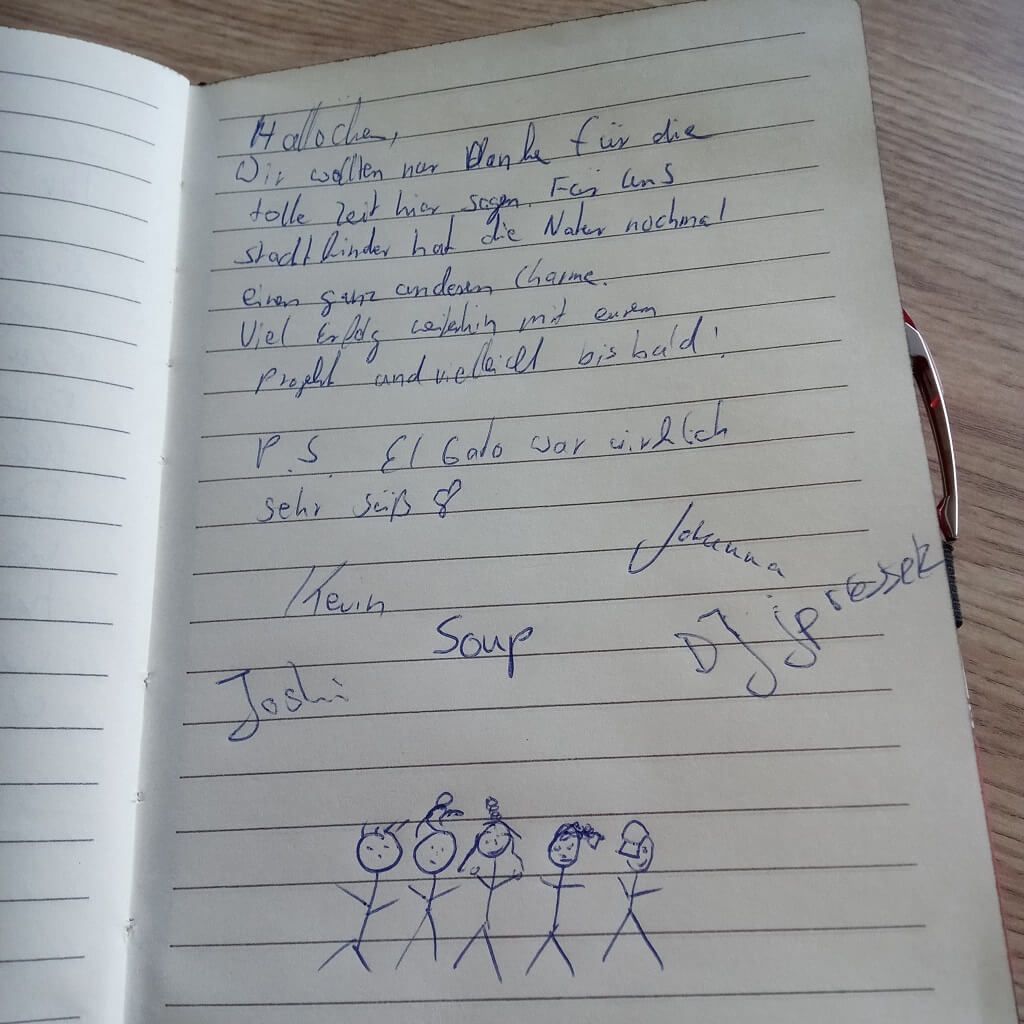 Hallöchen,
Wir wollten nur Danke für die
tolle Zeit hier sagen. Für uns
Stadtkinder hat die Natur nochmal
einen ganz anderen Charme.
Viel Erfolg weiterhin mit eurem
Projekt und vielleicht bis bald!
P.S. El Gato war wirklich
sehr süß
Johanna
Kevin
DJ jpressek
Soup
Joshi